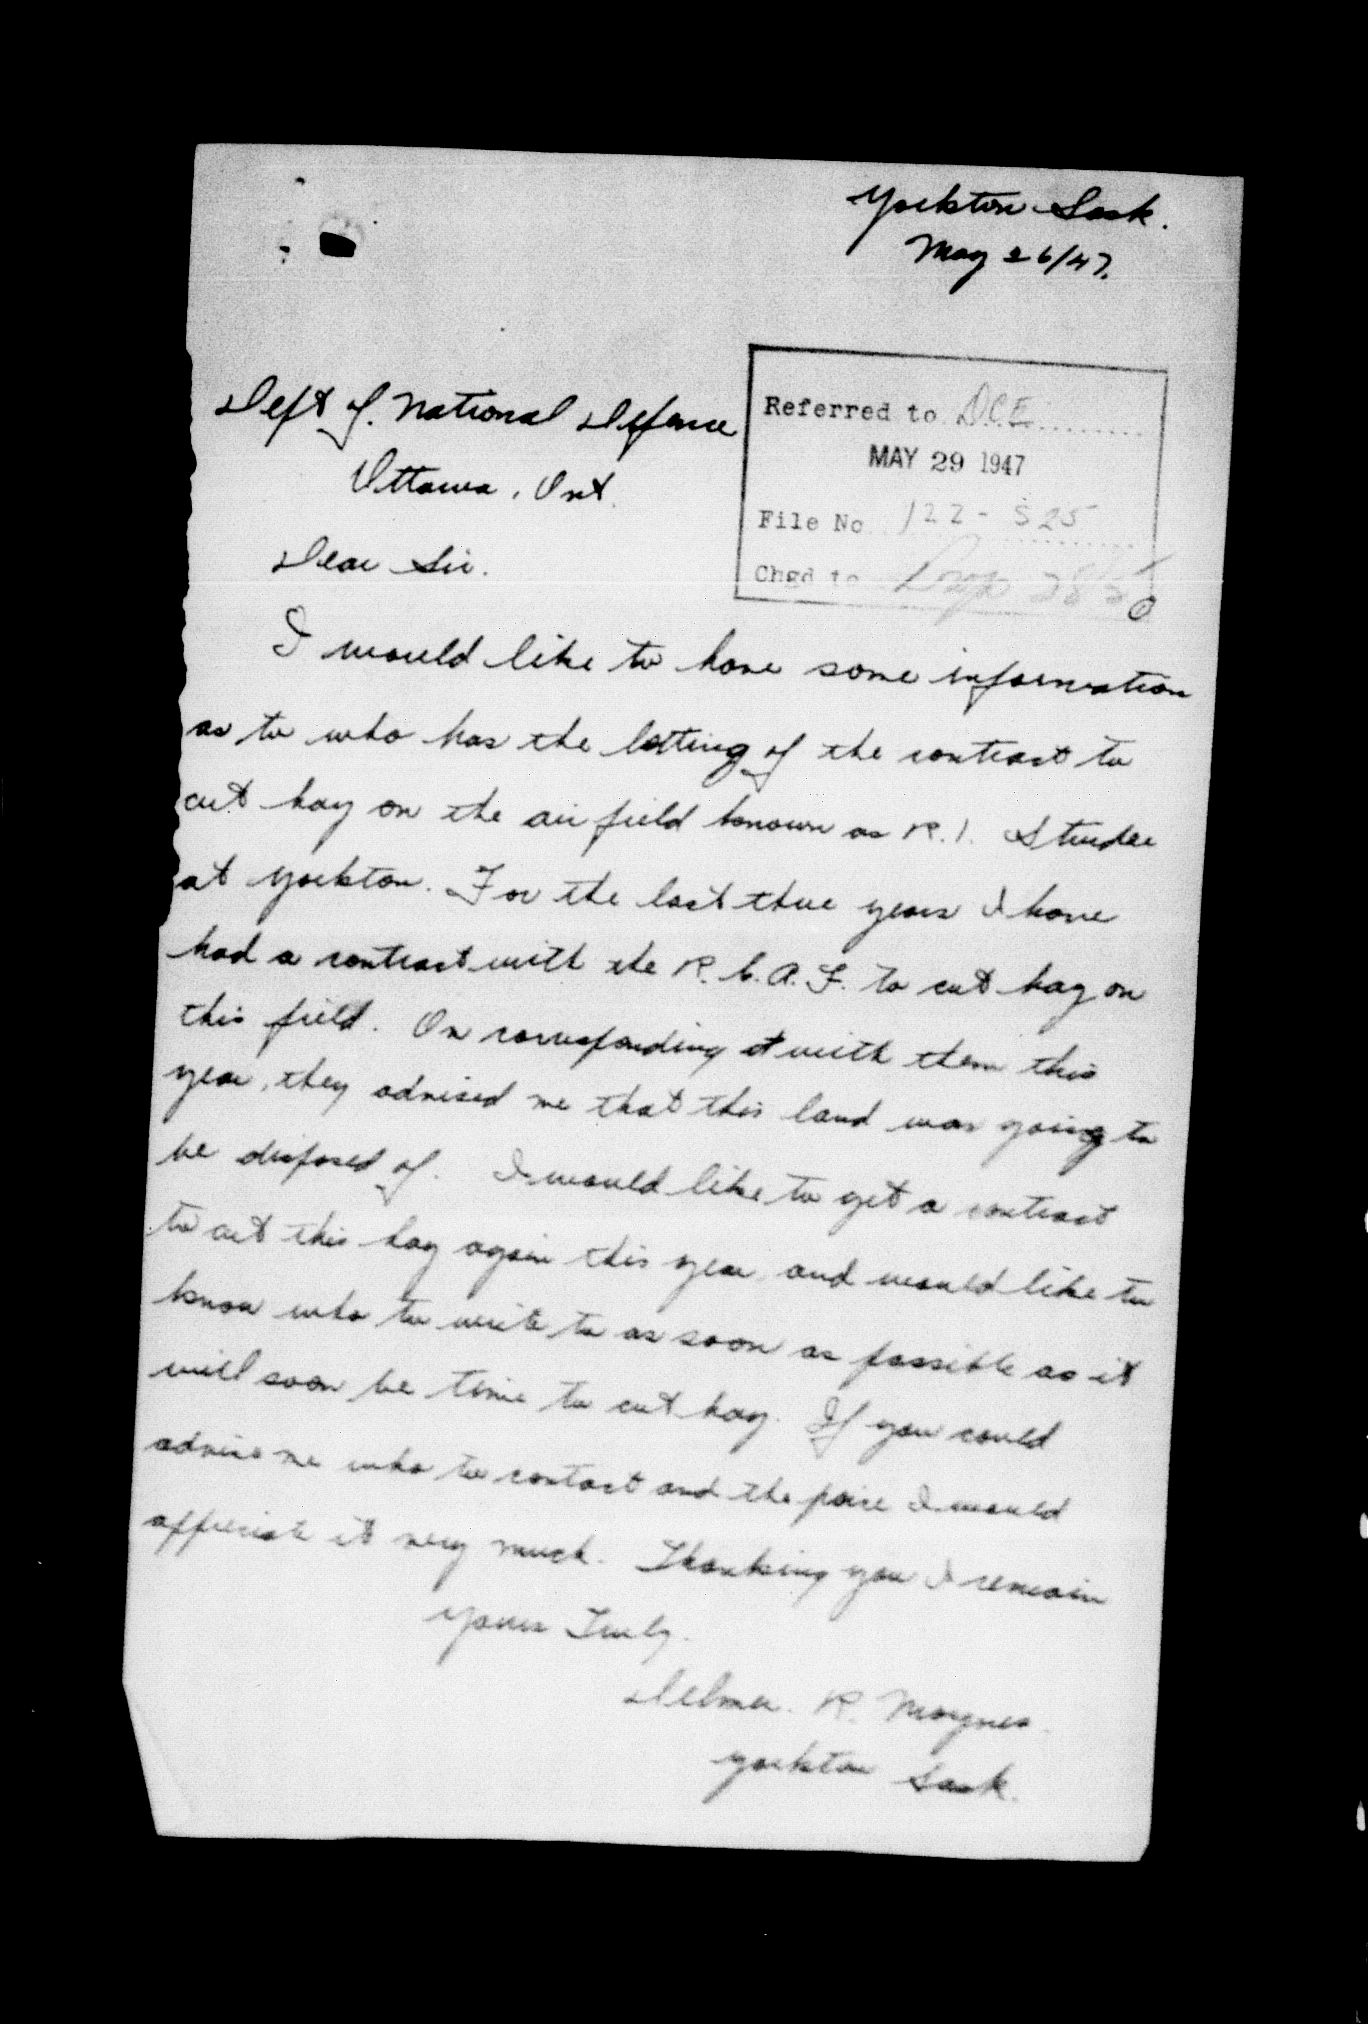 Yorkton Sask.
May 26/47.
Dept of. National Defence
Ottawa, Ont.
Referred to D.C.E.
MAY 29 1947
File No 122-S25
Chgd to
Dear Sir.
I would like to have some information
as to who has the letting of the contract to
cut hay on the air field known as R.1. Sturdee
at Yorkton. For the last three years I have
had a contract with the R.C.A.F. to cut hay on
this field. On corresponding with them this
year, they advised me that this land was going to
be disposed of. I would like to get a contract
to cut this hay again this year, and would like to
know who to write to as soon as possible as it
will soon be time to cut hay. If you could
advise me who to contact and the price I would
appreciate it very much. Thanking you I remain
Yours Truly.
Delmer. R. Moynes.
Yorkton Sask.